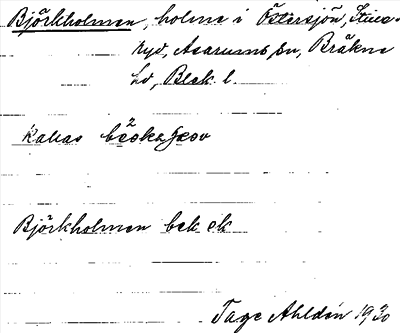 Björkholmen, holme i Östersjön, Stilleryd, Asarums sn, Bräkne
hd, Blek. l.
kallas
Björkholmen bek ek
Tage Ahldén 1930